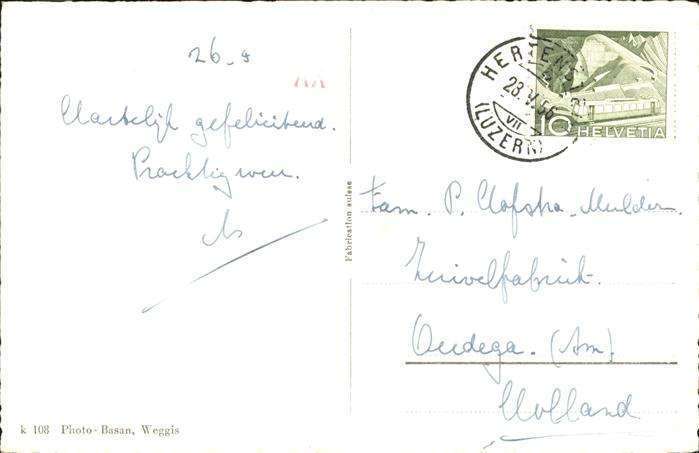 26-5
Hartelijk gefeliciteerd.
Prachtig weer.
k 108 Photo-Basan, Weggis
Fabrication suisse
HERTENST
28.V.56
VII
(LUZERN)
10 HELVETIA
Fam. P. Hofstra-Mulder.
Zuivelfabriek.
Oudega. (Sm).
Holland